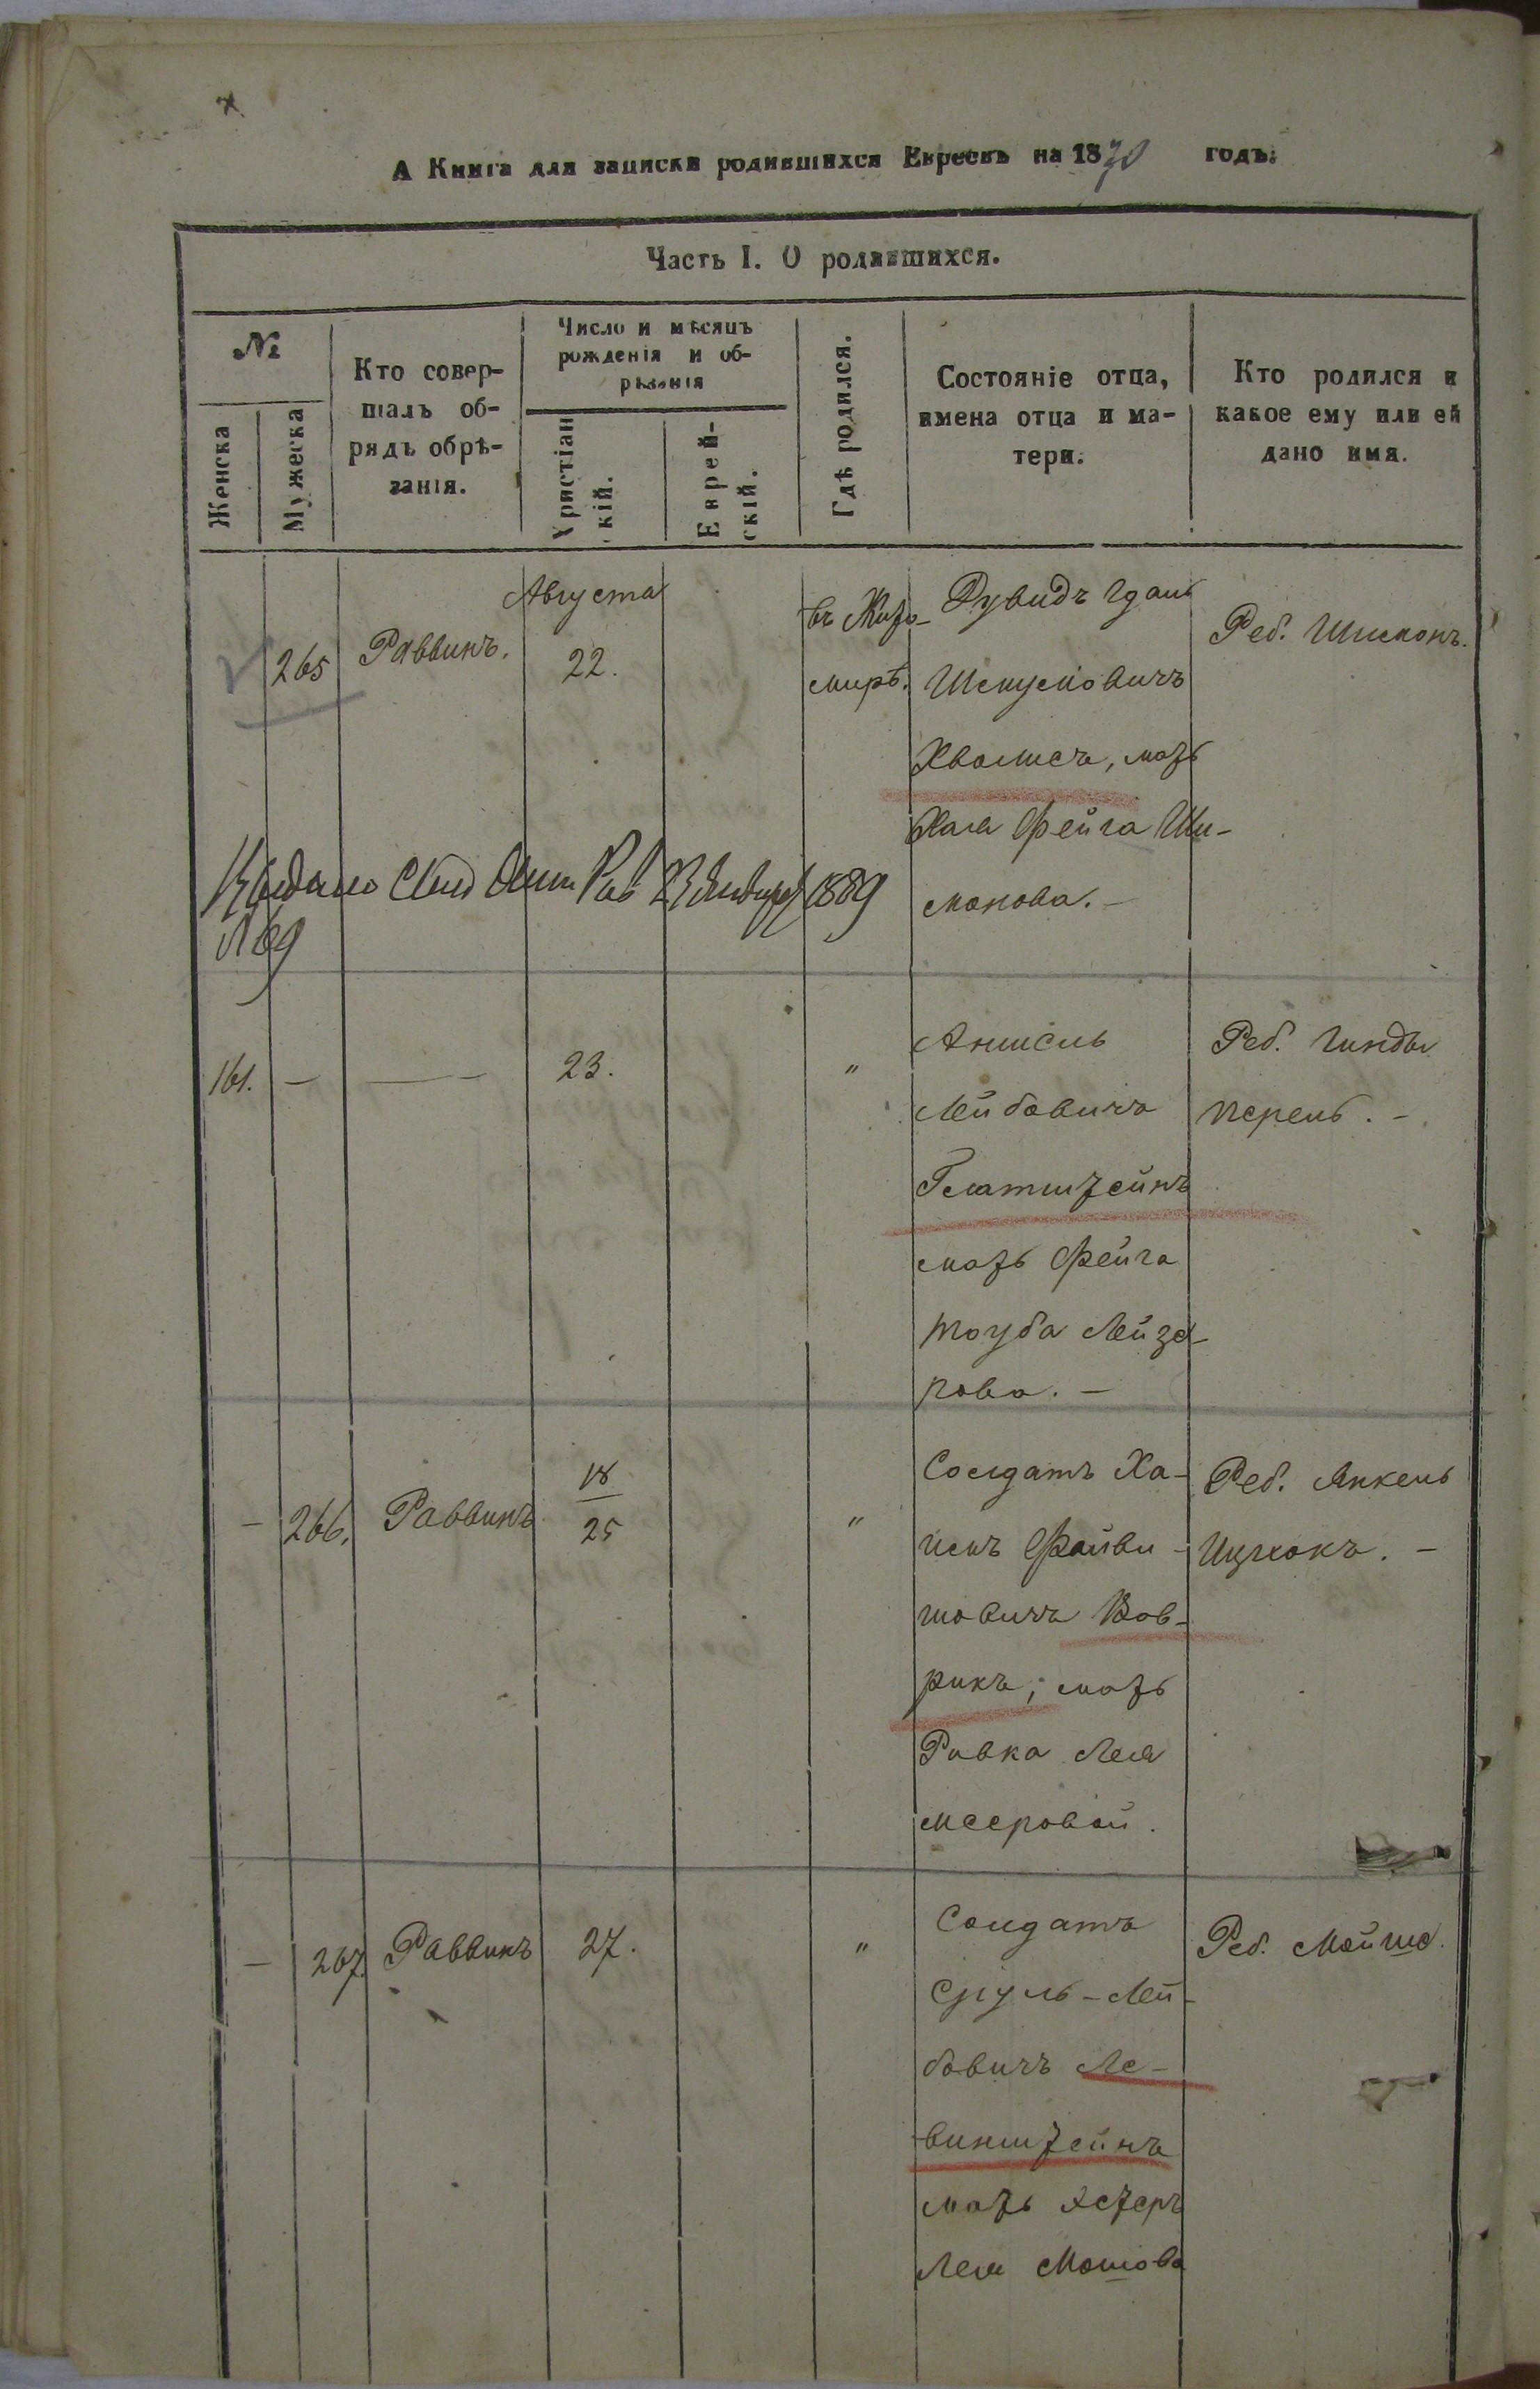 А Книга для записки родившихся Евреевъ на 1870 годъ.
Часть I. О родившихся.
№
Женска
Мужеска
Кто совер-
шалъ об-
рядъ обрѣ-
занія.
Число и мѣсяцъ
рожденія и об-
рѣзанія
Христіан
скій.
Еврей-
скій.
Гдѣ родился.
Состояніе отца,
имена отца и ма-
тери.
Кто родился и
какое ему или ей
дано имя.
265
Раввинъ.
Августа
22.
въ Жито-
мирѣ.
Дувидъ Удаль
Шмулевичъ
Хволисъ, мать
Хая Фейга Ши-
монова. —
Реб. Шимонъ.
Выдано 23 Января 1889
№ 69
161. — —
23.
"
Аншель
Лейбовичъ
Глатштейнъ
мать Фейга
Тоуба Лейзе-
рова. —
Реб. Гинды
Перель. —
— 266.
Раввинъ
18
25
"
Солдатъ Ха-
имъ Файви-
шовичъ Вов-
рикъ, мать
Ривка Лея
Меерова .
Реб. Янкель
Ицхокъ. —
— 267.
Раввинъ
27.
"
Солдатъ
Сруль-Лей-
бовичъ Ле-
винштейнъ
мать Эстеръ
Лея Мошова
Реб. Мойше.